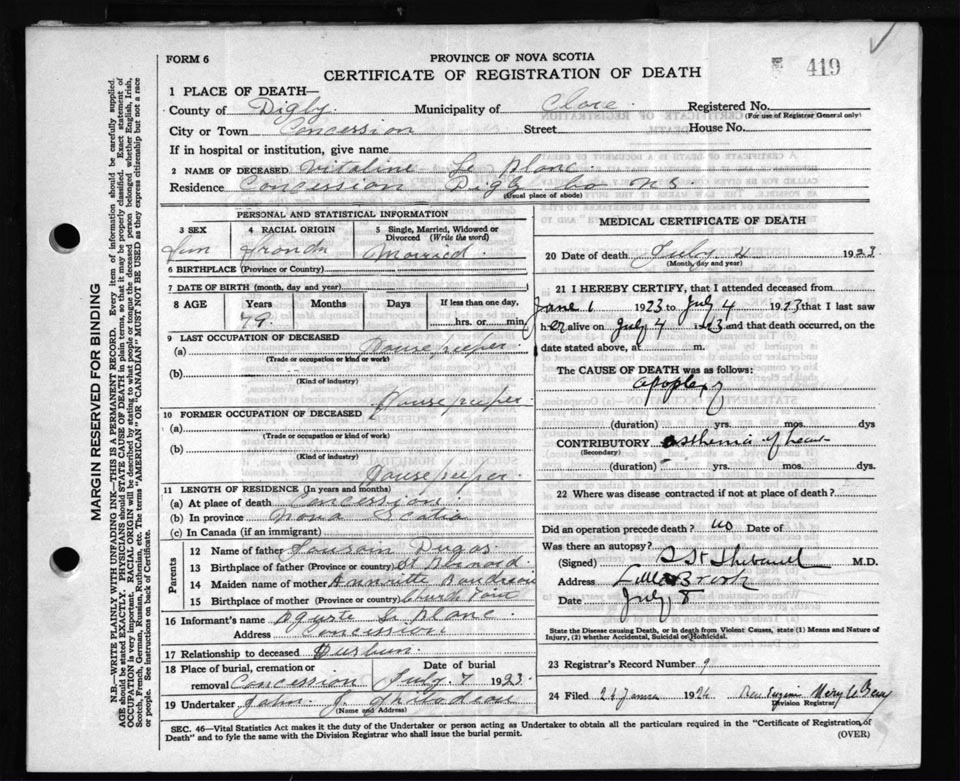 FORM 6
PROVINCE OF NOVA SCOTIA
CERTIFICATE OF REGISTRATION OF DEATH
419
1 PLACE OF DEATH—
County of Digby Municipality of Clare Registered No.
(For use of Registrar General only)
City or Town Concession Street House No.
If in hospital or institution, give name
2 NAME OF DECEASED Vitaline Le Blanc
Residence Concession Digby Co N S.
(Usual place of abode)
PERSONAL AND STATISTICAL INFORMATION
3 SEX 4 RACIAL ORIGIN 5 Single, Married, Widowed or Divorced (Write the word)
Fem French Married
6 BIRTHPLACE (Province or Country)
7 DATE OF BIRTH (month, day and year)
8 AGE Years Months Days If less than one day,
79 hrs. or min.
9 LAST OCCUPATION OF DECEASED
(a) House keeper
(Trade or occupation or kind of work)
(b)
(Kind of industry)
House keeper
10 FORMER OCCUPATION OF DECEASED
(a)
(Trade or occupation or kind of work)
(b)
(Kind of industry)
House keeper
11 LENGTH OF RESIDENCE (In years and months)
(a) At place of death Concession
(b) In province Nova Scotia
(c) In Canada (if an immigrant)
Parents
12 Name of father Dugas
13 Birthplace of father (Province or country) St Bernard
14 Maiden name of mother
15 Birthplace of mother (Province or country) Church Point
16 Informant's name Le Blanc
Address Concession
17 Relationship to deceased Husbun
18 Place of burial, cremation or removal Concession Date of burial July 7 1923
19 Undertaker John J. Thibodeau
(Name and Address)
MEDICAL CERTIFICATE OF DEATH
20 Date of death July 4 1923
(Month, day and year)
21 I HEREBY CERTIFY, that I attended deceased from
June 1 1923 to July 4 1923 that I last saw
her alive on July 4 1923 and that death occurred, on the
date stated above, at m.
The CAUSE OF DEATH was as follows:
apoplexy
(duration) yrs. mos. dys
CONTRIBUTORY asthenia of heart
(Secondary)
(duration) yrs. mos. ds.
22 Where was disease contracted if not at place of death?
Did an operation precede death? no Date of
Was there an autopsy?
(Signed) M.D.
Address Little Brook
Date July 8
State the Disease causing Death, or in death from Violent Causes, state (1) Means and Nature of
Injury, (2) whether Accidental, Suicidal or Homicidal.
23 Registrar's Record Number 9
24 Filed 1924
Division Registrar
SEC. 46—Vital Statistics Act makes it the duty of the Undertaker or person acting as Undertaker to obtain all the particulars required in the "Certificate of Registration of
Death" and to fyle the same with the Division Registrar who shall issue the burial permit.
(OVER)
MARGIN RESERVED FOR BINDING
N.B.—WRITE PLAINLY WITH UNFADING INK—THIS IS A PERMANENT RECORD. Every item of information should be carefully supplied.
AGE should be stated EXACTLY. PHYSICIANS should STATE CAUSE OF DEATH in plain terms, so that it may be properly classified. Exact statement of
OCCUPATION is very important. RACIAL ORIGIN will be described by stating to what people or tongue the deceased person belonged whether English, Irish,
Scotch, French, German, Russian, Ruthenian, etc. The terms "AMERICAN" OR "CANADIAN" MUST NOT BE USED as they express citizenship but not a race
or people. See instructions on back of Certificate.